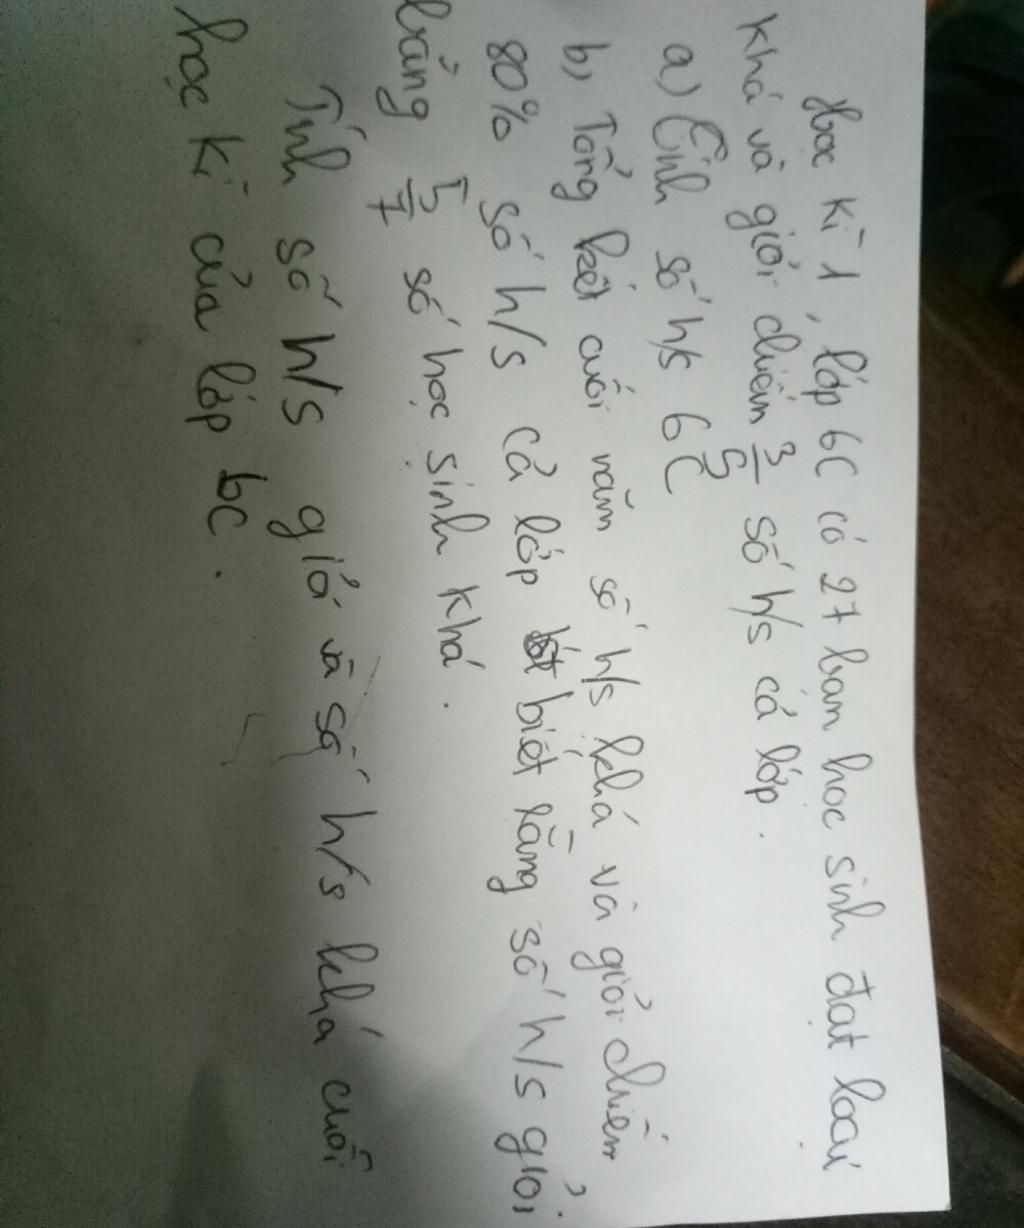 Học kì 1, lớp 6C có 27 bạn học sinh đạt loại
khá và giỏi chiếm 3/5 số h/s cả lớp.
a) Tính số h/s 6C
b) Tổng kết cuối năm số h/s khá và giỏi chiếm
80% số h/s cả lớp biết rằng số h/s giỏi
bằng 5/7 số học sinh khá.
Tính số h/s giỏi và số h/s khá cuối
học kì của lớp 6C.